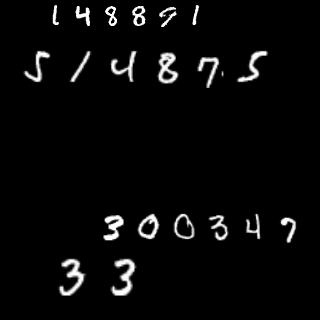 148891
514875
300347
33